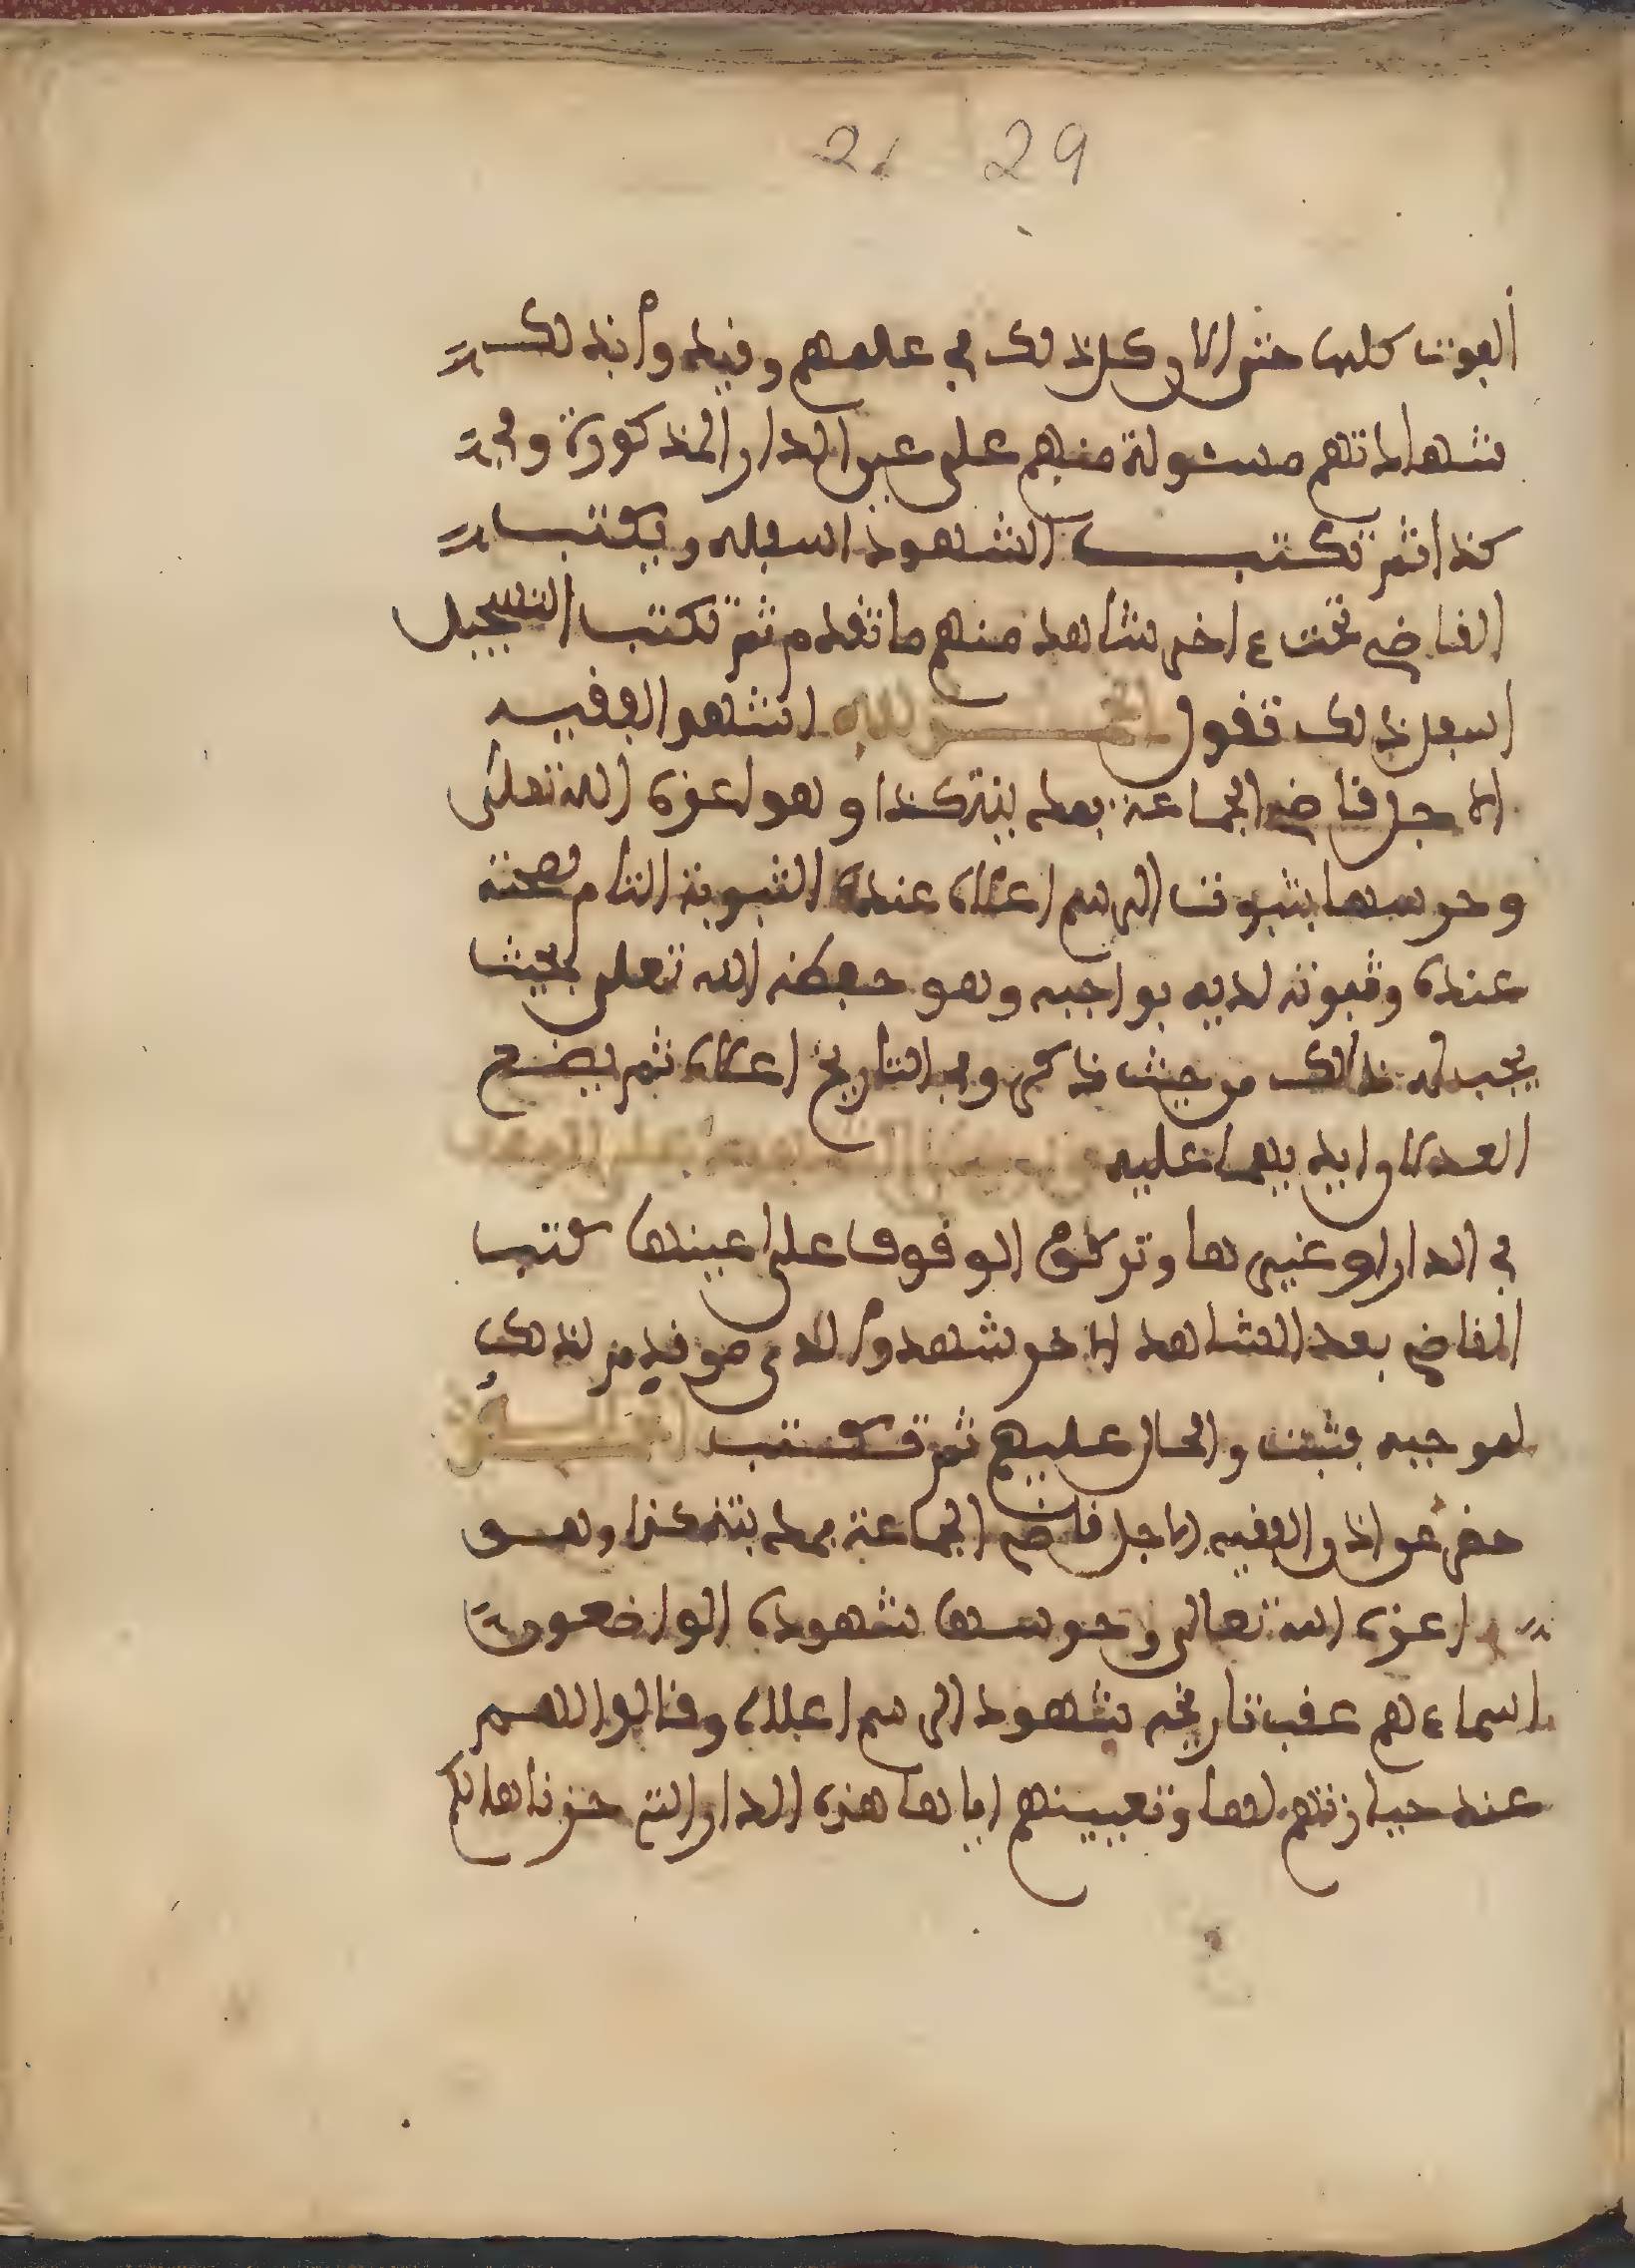 21 29
الموت كلها حتى الان وكل ذلك في علمهم وفيد وا بذلك
شهاداتهم مسئولة منهم على عين الدار المذكورة وفي
كذا ثم تكتب الشهود اسفله ويكتب
القاضي تحت ءاخر شاهد منهم ما تقدم ثم تكتب التسجيل
اسفل ذلك تقول الحمد لله اشهد الفقيه
الاجل قاضي الجماعة بمدينة كذا وهو اعزه الله تعلى
وحرسها بثبوت الرسم اعلاه عنده الثبوت التام لصحته
عنده وثبوته لديه بواجبه وهو حفظه الله تعلى بحيث
يجب له ذالك من حيث ذكر وفي التاريخ اعلاه ثم يضع
العدلان ايديهما عليه
في الدار او غيرها وتركوا الوقوف على عينها كتب
القاضي بعد الشاهد الاخر شهدوا لدى من قيد من لذلك
لموجبه فثبت والحال عليهم ثم تكتب
حضر عواذ والفقيه الاجل قاضي الجماعة بمدينة كذا وهو
اعزه الله تعالى وحرسها شهوده الواضعون
اسماءهم عقب تاريخه شهود الرسم اعلاه وقالوا لهم
عند حيازتهم لها وتعيينهم اياها هذه الدار التي حزناها لكم